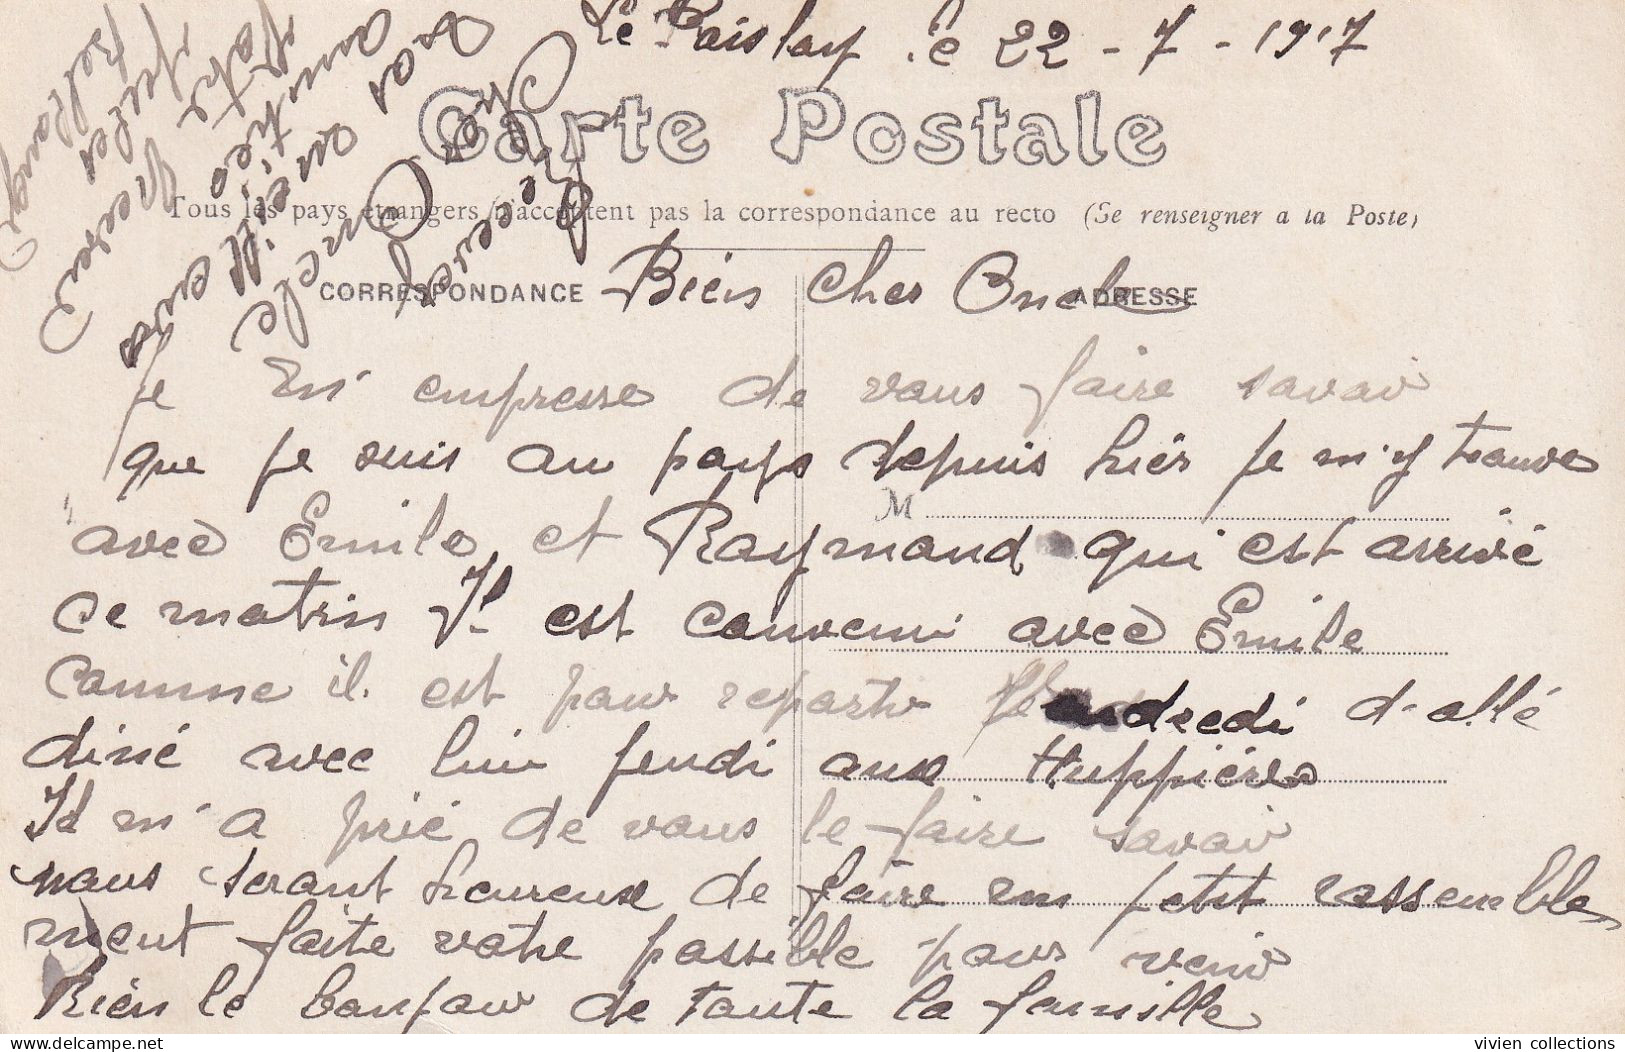 Le Paislay le 22 - 7 - 1917
Carte Postale
Tous les pays étrangers n'acceptent pas la correspondance au recto (Se renseigner à la Poste)
CORRESPONDANCE
ADRESSE
Bien cher Oncle
Je m'empresse de vous faire savoir
que je suis au pays depuis hièr je m'y trouve
M
avec Emile et Raymond qui est arrivé
ce matin Il est convenu avec Emile
comme il est pour repartir Vendredi d'allé
diné avec lui jeudi aux Huppières
Il m'a prié de vous le faire savoir
nous seront heureux de faire un petit rassemble
ment faite votre possible pour venir
Bien le bonjour de toute la famille
Votre neveu
vivien collections
delcampe.net